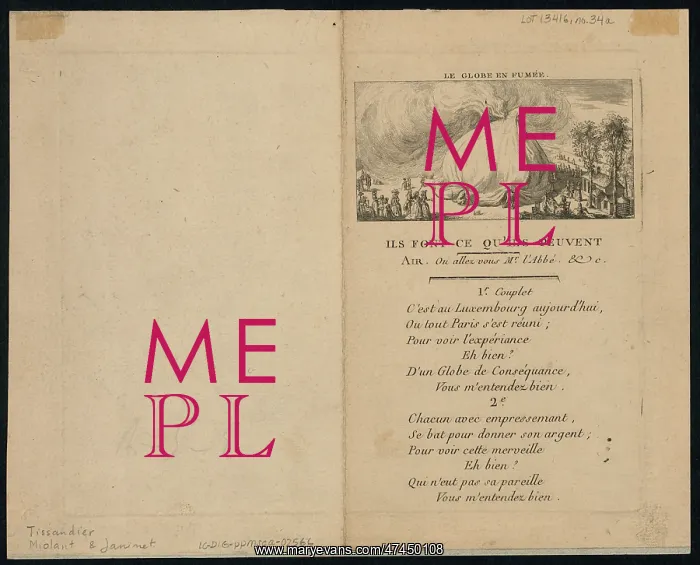 LOT 13416, no. 34a
LE GLOBE EN FUMÉE.
ME
PL
ILS FONT CE QU'ILS PEUVENT
AIR. Ou allez vous Mr. l'Abbé. &c.
1r. Couplet
C'est au Luxembourg aujourd'hui,
Ou tout Paris s'est réuni ;
Pour voir l'expériance
Eh bien ?
D'un Globe de Conséquance,
Vous m'entendez bien .
2e
Chacun avec empressemant ,
Se bat pour donner son argent ;
Pour voir cette merveille
Eh bien ?
Qui n'eut pas sa pareille
Vous m'entendez bien .
ME
PL
Tissandier
Miolant & Janinet
LC-DIG-ppmsca-02566
www.maryevans.com/47450108